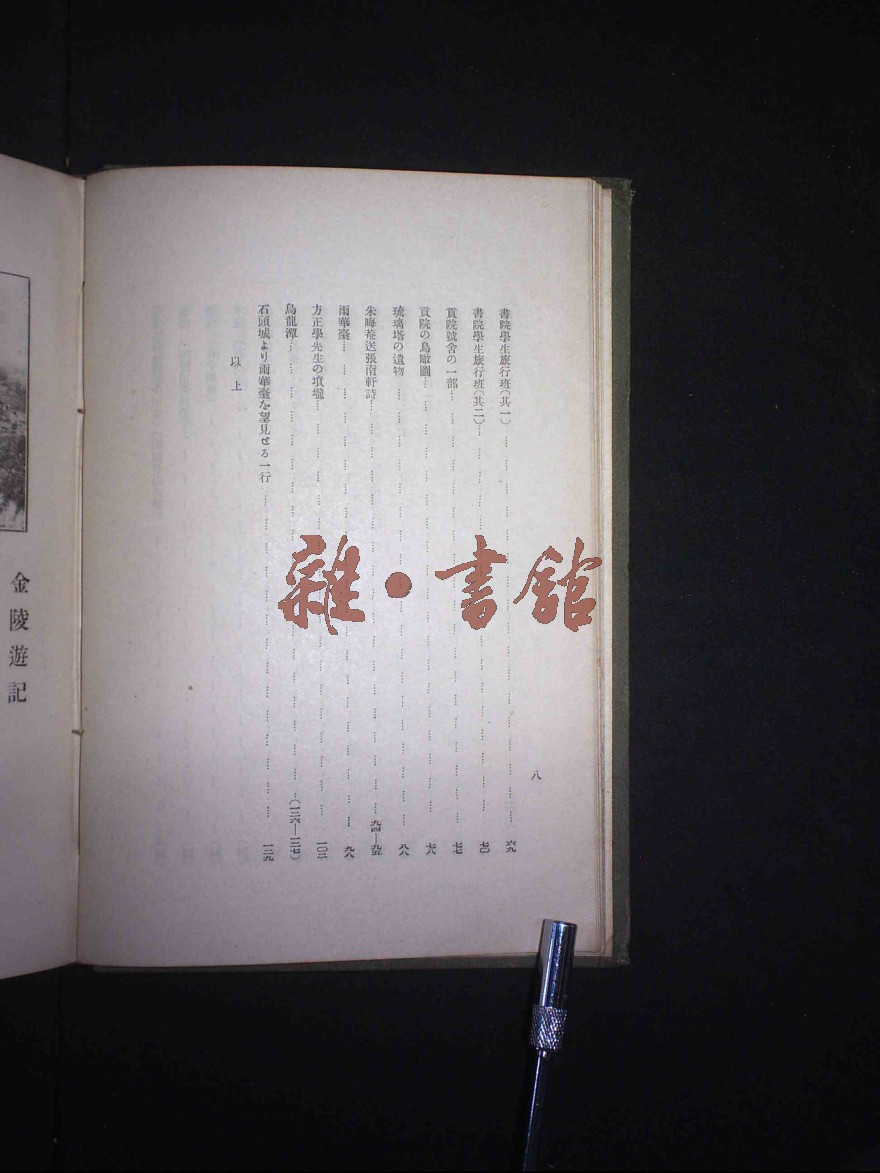 八
書院學生旅行班(其一)……六九
書院學生旅行班(其二)……七〇
貢院號舍の一部……七七
貢院の鳥瞰圖……七八
琉璃塔の遺物……八八
朱晦菴送張南軒詩……九四—九五
雨華臺……九八
方正學先生の墳壠……一〇二
烏龍潭……(一三六—一三七)
石頭城より雨華臺を望見せる一行……一三九
以上
金陵遊記
雜·書館